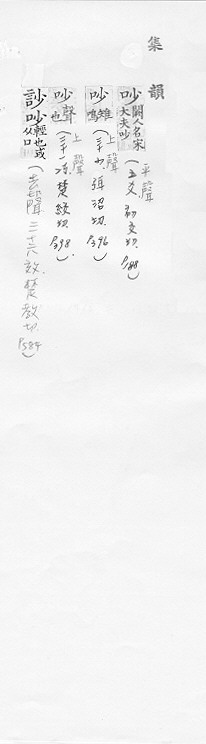 集韻
吵 闕人名宋大夫吵 (平聲 五爻 初交切 P188)
吵 雉鳴 (上聲 三十小 弭沼切 P396)
吵 聲也 (上聲 三十一巧 楚絞切 P398)
訬吵 輕也或从口 (去聲 三十六效 楚教切 P584)